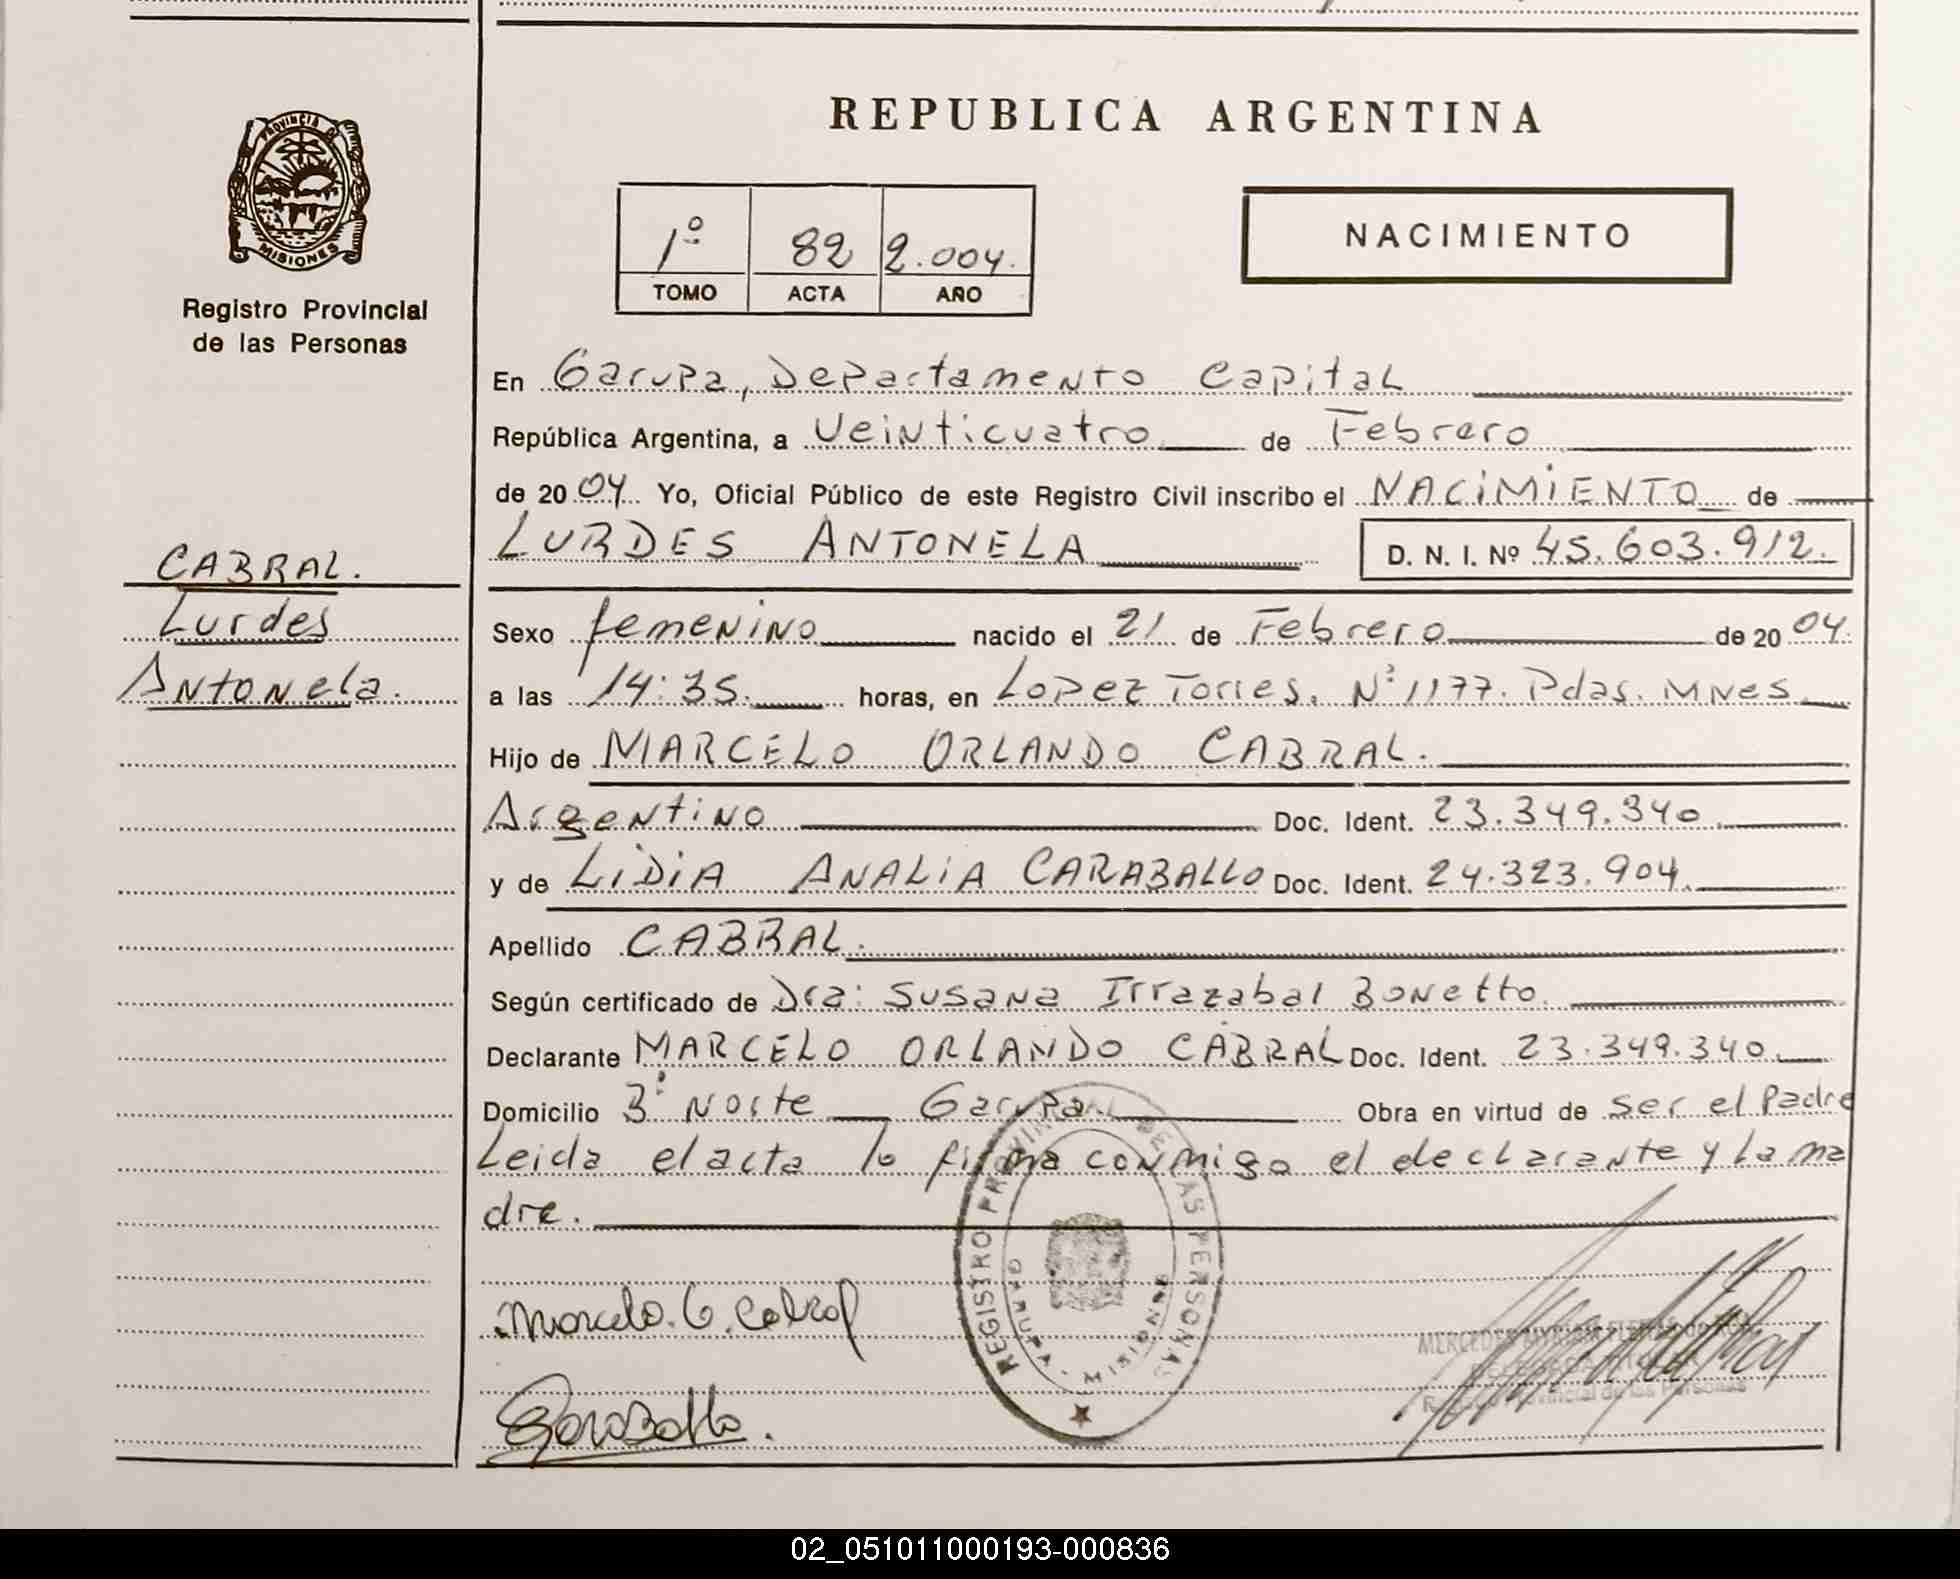 REPUBLICA ARGENTINA
PROVINCIA D
MISIONES
Registro Provincial
de las Personas
1º 82 2.004.
TOMO ACTA AÑO
NACIMIENTO
En Garupa, Departamento Capital
República Argentina, a Veinticuatro de Febrero
de 2004. Yo, Oficial Público de este Registro Civil inscribo el NACIMIENTO de
LURDES ANTONELA D. N. I. Nº 45.603.912.
CABRAL.
Lurdes
Antonela.
Sexo femenino nacido el 21 de Febrero de 2004.
a las 14:35. horas, en Lopez Torres. Nº 1177. Pdas. Mnes.
Hijo de MARCELO ORLANDO CABRAL.
Argentino Doc. Ident. 23.349.340
y de LIDIA ANALIA CARABALLO Doc. Ident. 24.323.904.
Apellido CABRAL.
Según certificado de Dra: Susana Irrazabal Bonetto.
Declarante MARCELO ORLANDO CABRAL Doc. Ident. 23.349.340.
Domicilio 3º Norte Garupa. Obra en virtud de ser el Padre
Leida el acta lo firma conmigo el declarante y la ma
dre.
Marcelo. O. Cabral
Caraballo.
REGISTRO PROVINCIAL DE LAS PERSONAS
GARUPA - MISIONES
DELEGADA TITULAR
Registro Provincial de las Personas
02_051011000193-000836